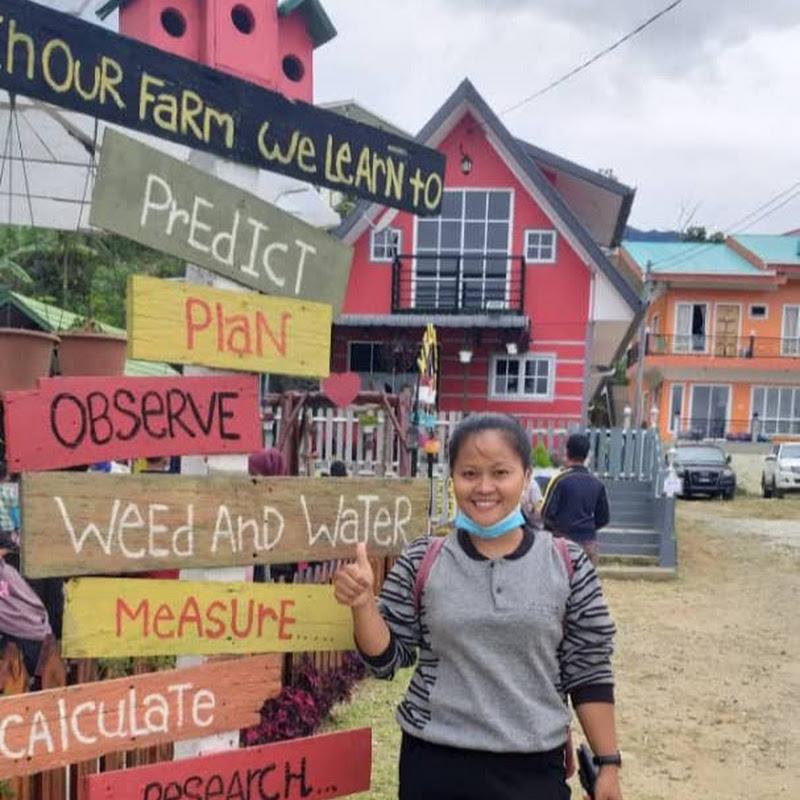 OUR FARM We LEArN tO
PrEdICT
PlaN
OBSErVE
WeEd ANd WaTER
MeASUrE....
CalCULaTE
RESEArCH...